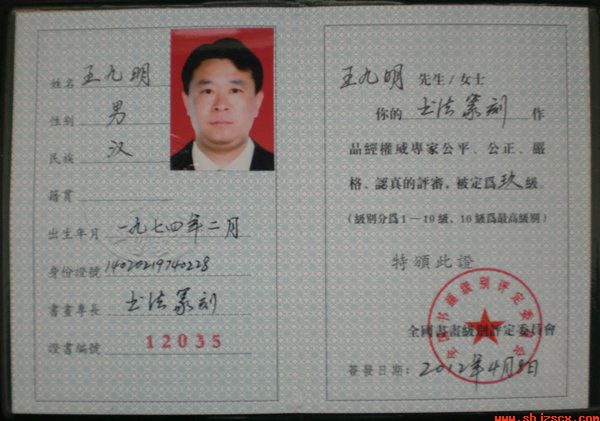 姓名 王九明
性别 男
民族 汉
籍貫
出生年月 一九七四年二月
身份證號 14020219740228
書畫專長 书法篆刻
證書編號 12035
王九明 先生/女士
你的 书法篆刻 作
品經權威專家公平、公正、嚴
格、認真的評審，被定爲玖級。
(級別分爲1—10級，10級爲最高級別)
特頒此證
全國書畫級別評定委員會
簽發日期: 2012年4月8日
www.shizscx.com